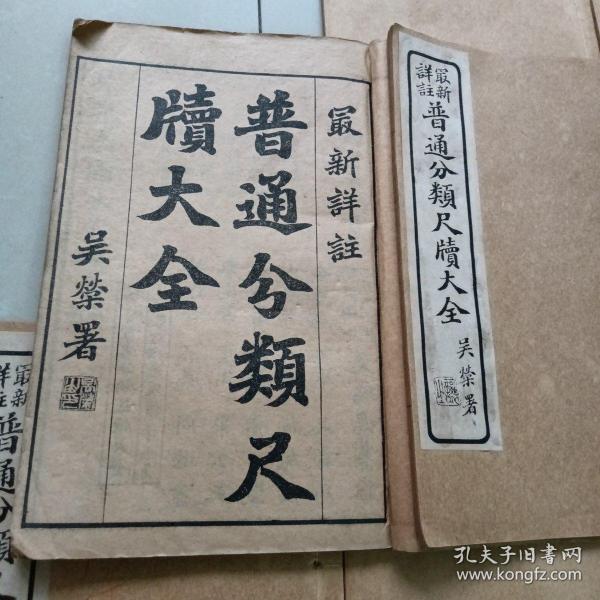 最新詳註
普通分類尺
牘大全
吴棨署
最新
詳註
普通分類尺牘大全
吴棨署
最新
詳註
普通分類
孔夫子旧书网
www.kongfz.com